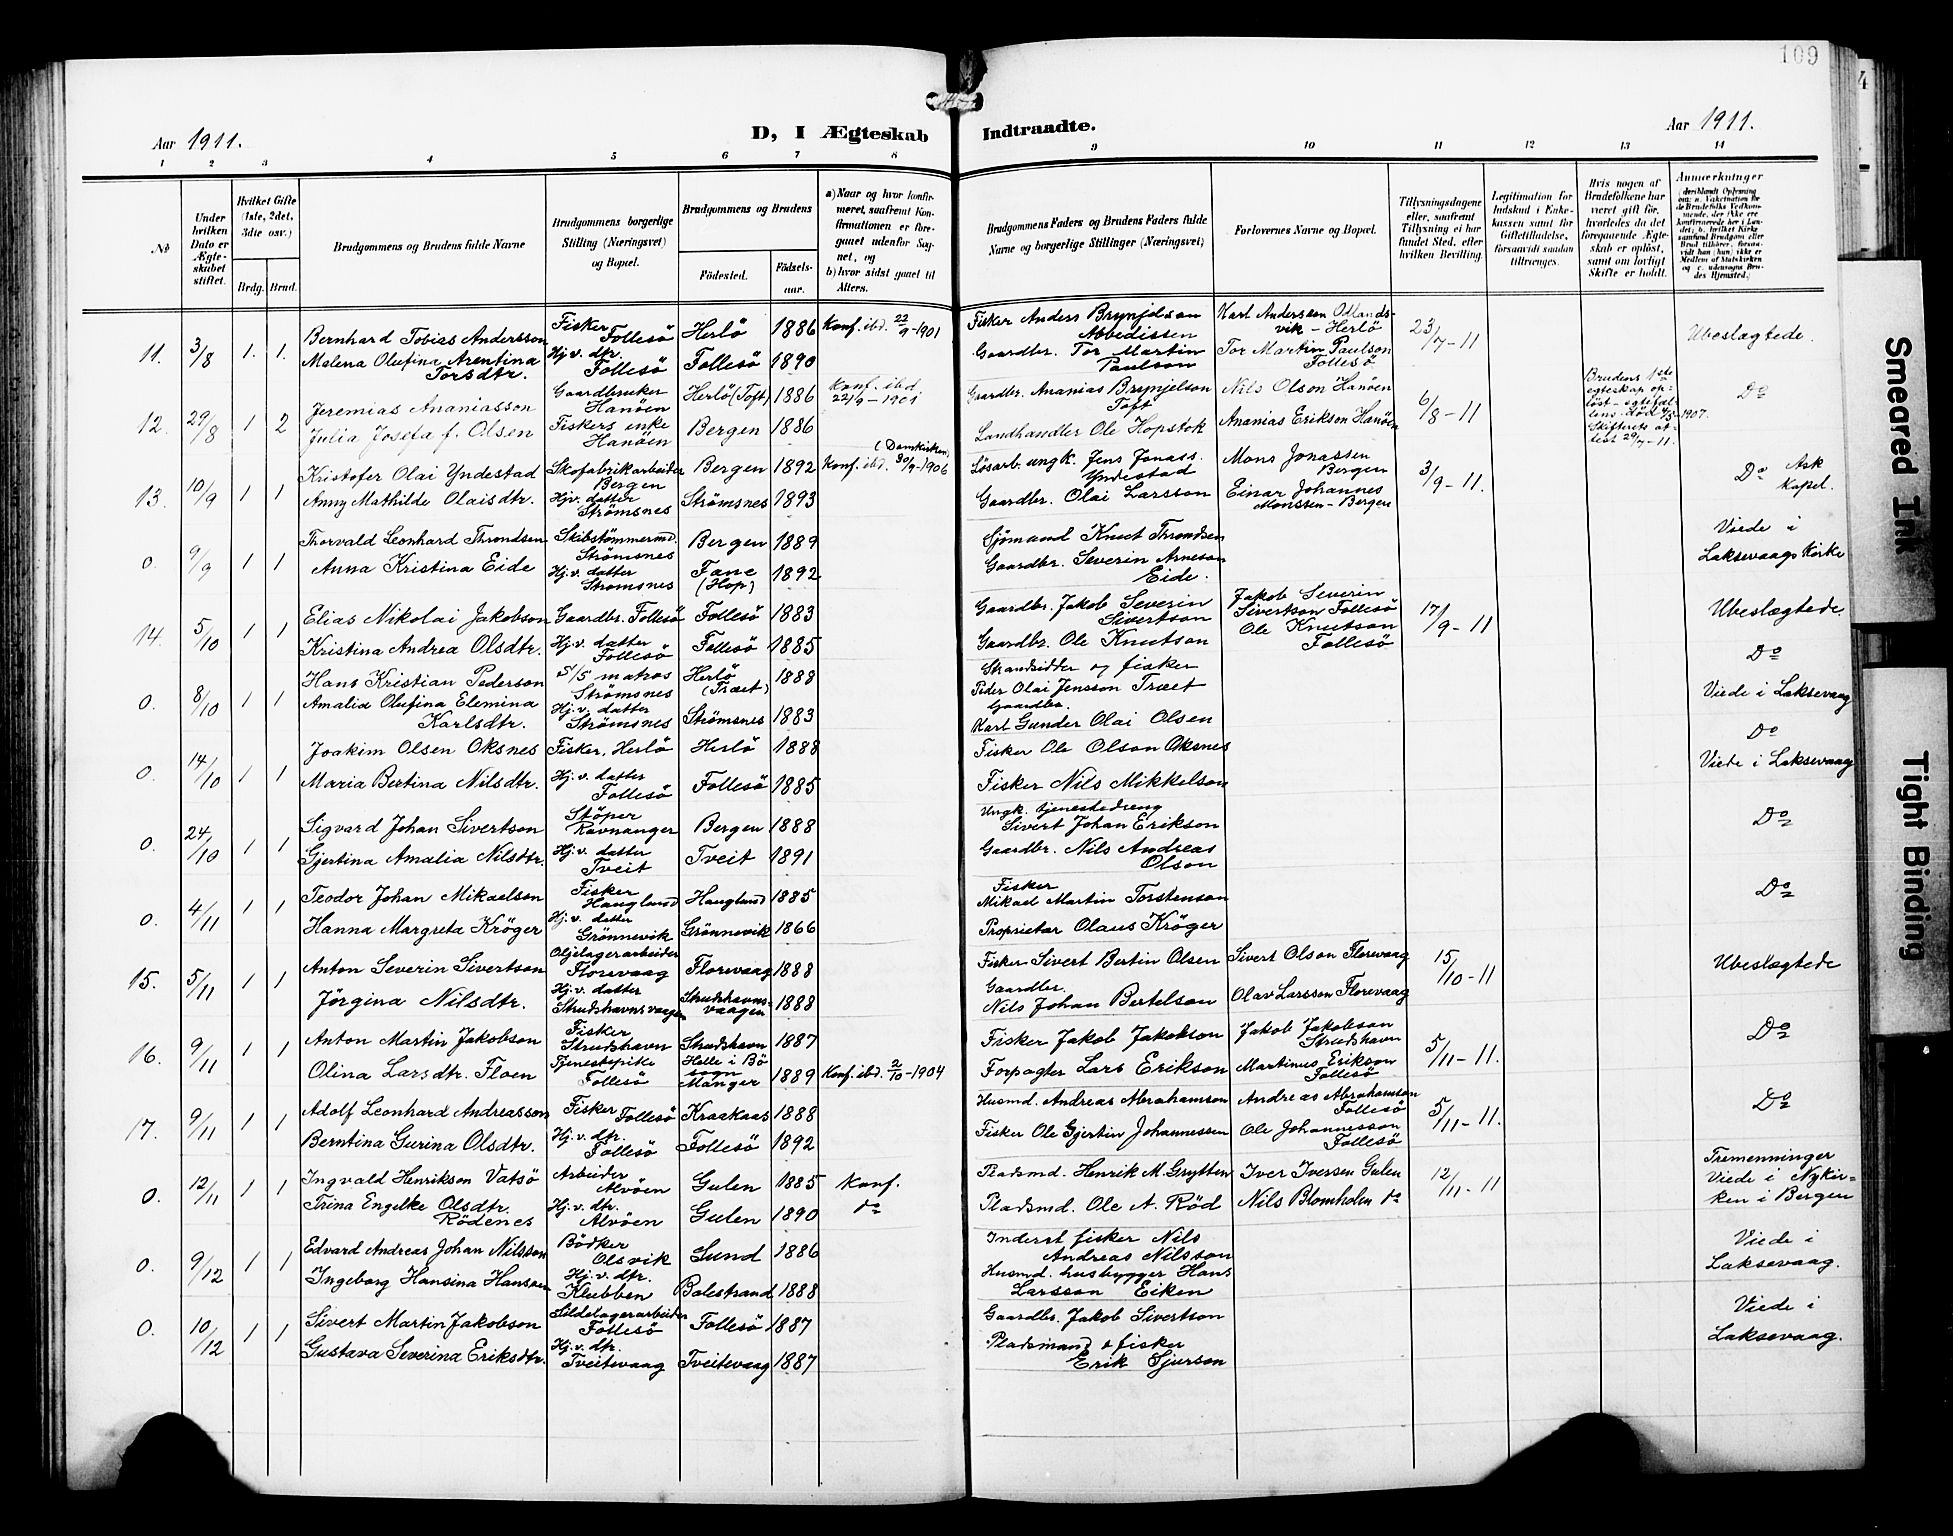 109
Aar 1911. D, I Ægteskab Indtraadte. Aar 1911.
1 2 3 4 5 6 7 8 9 10 11 12 13 14
No
Under hvilken Dato er Ægteskabet stiftet.
Hvilket Gifte (1ste, 2det, 3dte osv.)
Brdg. Brud.
Brudgommens og Brudens fulde Navne
Brudgommens borgerlige Stilling (Næringsvei) og Bopæl.
Brudgommens og Brudens
Födested. Födselsaar.
a) Naar og hvor konfirmeret, saafremt Konfirmationen er foregaaet udenfor Sognet, og
b) hvor sidst gaaet til Alters.
Brudgommens Faders og Brudens Faders fulde Navne og borgerlige Stillinger (Næringsvei)
Forlovernes Navne og Bopæl.
Tillysningsdagene eller, saafremt Tillysning ei har fundet Sted, efter hvilken Bevilling.
Legitimation for Indskud i Enkekassen samt for Giftetilladelse, forsaavidt saadan tiltrænges.
Hvis nogen af Brudefolkene har været gift för, hvorledes da det foregaaende Ægteskab er oplöst, samt om lovligt Skifte er holdt.
Anmærkninger
11. 3/8 1. 1. Bernhard Tobias Anderssen Fisker Follesö Herlö 1886 Konf. ibd. 22/9-1901 Fisker Anders Brynjelson Abbedissen Karl Anderssen Oltandsvik - Herlö 23/7-11 Ubeslægtede.
Malena Olufina Arentina Torsdtr. Hj. v. dtr. Follesö Follesö 1890 Gaardbr. Tor Martin Paulson Tor Martin Paulson Follesö
12. 29/8 1 2 Jeremias Ananiasson Gaardbruker Hanöen Herlö (Toft) 1886 Konf. ibd. 22/9-1901 Gaardbr. Ananias Brynjelson Toft Nils Olson Hanöen 6/8-11 Brudens 1ste egteskap oplöst - egtefællens död 4/5-1907. Skifterets attest 29/7-11. Do
Julia Josefa f. Olsen Fiskers enke Hanöen Bergen 1886 Landhandler Ole Hopstok Ananias Erikson Hanöen
13. 10/9 1 1 Kristofer Olai Yndestad Skofabrikarbeider Bergen Bergen 1892 Konf. ibd. (Domkirken) 30/9-1906 Lösarb. ungk. Jens Jonass. Yndestad Mons Jonassen Bergen 3/9-11. Do Ask Kapel.
Anny Mathilde Olaisdtr. Hj. v. datter Strömsnes Strömsnes 1893 Gaardbr. Olai Larsson Einar Johannes Monssen - Bergen
0. 9/9 1 1 Thorvald Leonhard Throndsen Skibstömmermd. Strömsnes Bergen 1889 Sjömand Knut Throndsen Viede i Laksevaags Kirke
Anna Kristina Eide Hj. v. datter Strömsnes Fane (Hop) 1892 Gaardbr. Severin Arneson Eide.
14. 5/10 1 1 Elias Nikolai Jakobson Gaardbr. Follesö Follesö 1883 Gaardbr. Jakob Severin Sivertson Jakob Severin Sivertson Follesö 17/9-11 Ubeslægtede
Kristina Andrea Olsdtr. Hj. v. datter Follesö Follesö 1885 Gaardbr. Ole Knutson Ole Knutson Follesö
0. 8/10 1 1 Hans Kristian Pederson S/S matros Strömsnes Herlö (Træet) 1888 Strandsidder og fisker Peder Olai Jensson Træet Do
Amalia Olufina Elemina Karlsdtr. Hj. v. datter Strömsnes Strömsnes 1883 Gaardbr. Karl Gunder Olai Olsen Viede i Laksevaag
0. 14/10 1 1 Joakim Olsen Oksnes Fisker, Herlö Herlö 1888 Fisker Ole Olson Oksnes Do
Maria Bertina Nilsdtr. Hj. v. datter Follesö Follesö 1885 Fisker Nils Mikkelson Viede i Laksevaag
0. 24/10 1 1 Sigvard Johan Sivertson Stöper Ravnanger Bergen 1888 Ungk. tjenestedreng Sivert Johan Erikson Do
Gjertina Amalia Nilsdtr. Hj. v. datter Tveit Tveit 1891 Gaardbr. Nils Andreas Olson
0. 4/11 1 1 Teodor Johan Mikaelson Fisker Haugland Haugland 1885 Fisker Mikael Martin Torstenson Do
Hanna Margreta Kröger Hj. v. datter Grönnevik Grönnevik 1866 Proprietar Olaus Kröger
15. 5/11 1 1 Anton Severin Sivertson Oljelagerarbeider Florevaag Florevaag 1888 Fisker Sivert Bertin Olsen Sivert Olson Florevaag 15/10-11 Ubeslægtede
Jörgina Nilsdtr. Hj. v. datter Strudshavnsvaagen Strudshavnsvaagen 1888 Gaardbr. Nils Johan Bertelson Olav Larsson Florevaag
16. 9/11 1 1 Anton Martin Jakobson Fisker Strudshavn Strudshavn 1887 Fisker Jakob Jakobson Jakob Jakobson Strudshavn 5/11-11. Do
Olina Larsdtr. Floen Tjenestepike Follesö Helle i Bö sogn Manger 1889 Konf. ibd. 2/10-1904 Forpagter Lars Erikson Martinus Erikson Follesö
17. 9/11 1 1 Adolf Leonhard Andreasson Fisker Follesö Kraakaas 1888 Husmd. Andreas Abrahamson Andreas Abrahamson Follesö 5/11-11. Do
Berntina Gurina Olsdtr. Hj. v. dtr. Follesö Follesö 1892 Fisker Ole Gjertin Johannessen Ole Johannesson Follesö
0. 12/11 1 1 Ingvald Henrikson Vatsö Arbeider Alvöen Gulen 1885 Konf. Pladsmd. Henrik M. Grytten Iver Iversen Gulen 12/11-11 Tremenninger Viede i Nykirken i Bergen
Trina Engelke Olsdtr. Rödenes Hj. v. dtr. Alvöen Gulen 1890 do Pladsmd. Ole A. Röd Nils Blomholm do
0. 9/12 1 1 Edvard Andreas Johan Nilsson Bödker Olsvik Sund 1886 Inderst fisker Nils Andreas Nilsson Viede i Laksevaag.
Ingeborg Hansina Hansen Hj. v. dtr. Klubben Balestrand 1888 Husmd. husbygger Hans Larsson Eiken
0. 10/12 1 1 Sivert Martin Jakobson Sildelagerarbeider Follesö Follesö 1887 Gaardbr. Jakob Sivertson Viede i Laksevaag.
Gustava Severina Eriksdtr. Hj. v. dtr. Tveitevaag Tveitevaag 1887 Pladsmand & fisker Erik Sjurson
4
Smeared Ink
Tight Binding